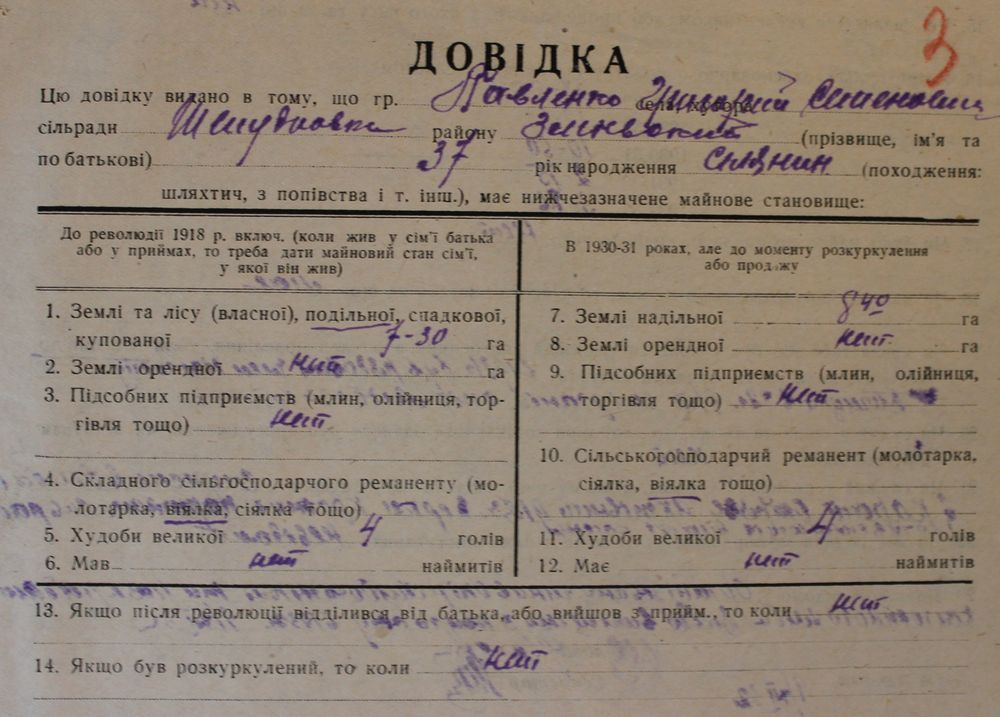 3
ДОВІДКА
Цю довідку видано в тому, що гр. Павленко Семенович
сільради району (прізвище, ім'я та
по батькові) 37 рік народження (походження:
шляхтич, з попівства і т. інш.), має нижчезазначене майнове становище:
До революції 1918 р. включ. (коли жив у сім'ї батька
або у приймах, то треба дати майновий стан сім'ї,
у якої він жив)
1. Землі та лісу (власної), подільної, спадкової,
купованої 7-30 га
2. Землі орендної нит га
3. Підсобних підприємств (млин, олійниця, тор-
гівля тощо) нит
4. Складного сільгосподарчого реманенту (мо-
лотарка, віялка, сіялка тощо)
5. Худоби великої 4 голів
6. Мав нит наймитів
В 1930-31 роках, але до моменту розкуркулення
або продажу
7. Землі надільної 8 40 га
8. Землі орендної нит га
9. Підсобних підприємств (млин, олійниця,
торгівля тощо) нит
10. Сільськогосподарчий реманент (молотарка,
сіялка, віялка тощо)
11. Худоби великої 4 голів
12. Має нит наймитів
13. Якщо після революції відділився від батька, або вийшов з прийм., то коли нит
14. Якщо був розкуркулений, то коли нит